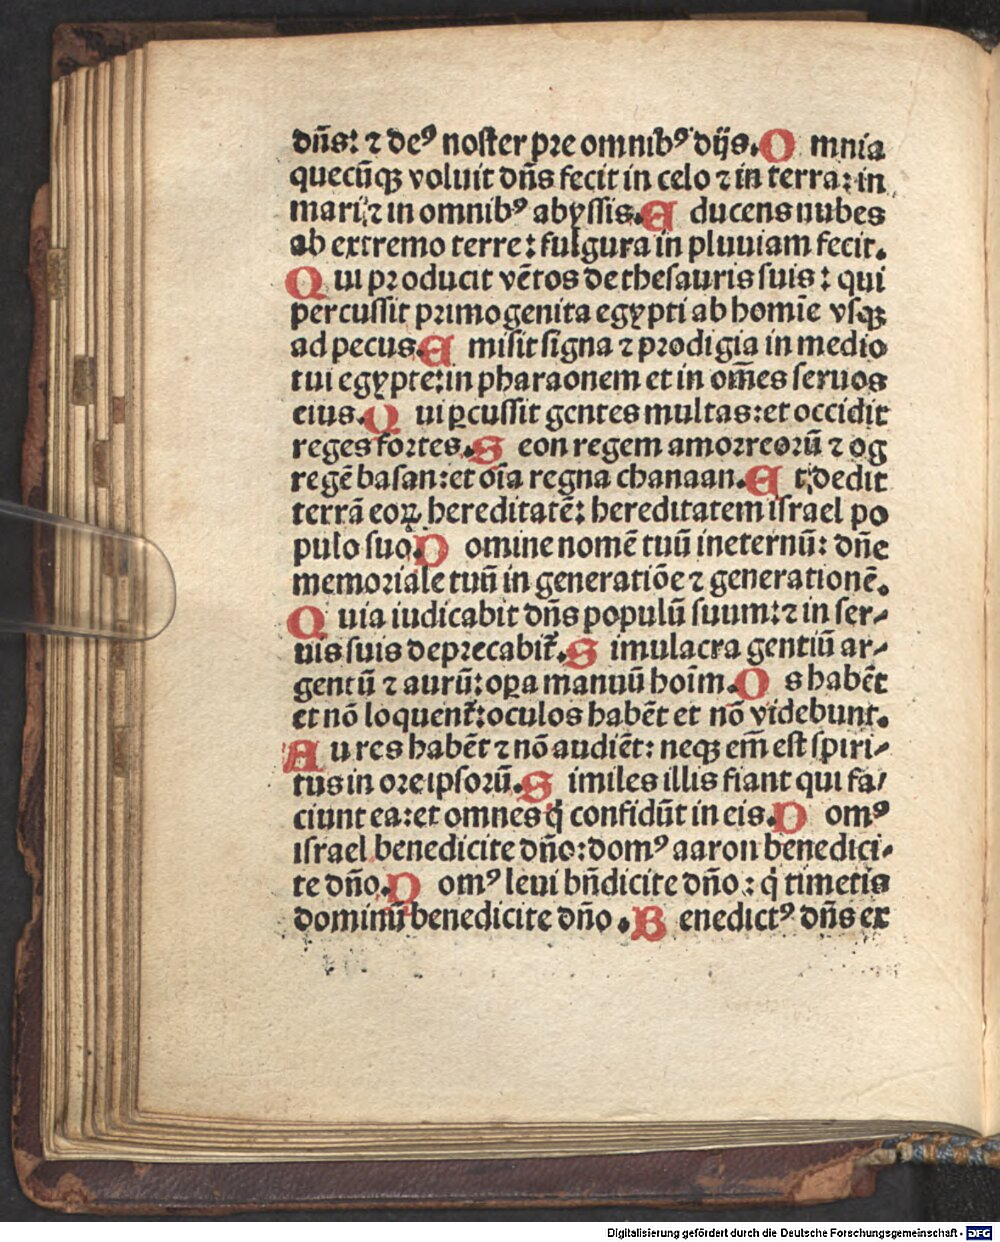 dn̄s: ⁊ deꝰ noster pre omnibꝰ dijs. Omnia
quecūqꝫ voluit dn̄s fecit in celo ⁊ in terra: in
mari: ⁊ in omnibꝰ abyssis. Educens nubes
ab extremo terre: fulgura in pluuiam fecit.
Qui producit vētos de thesauris suis: qui
percussit primogenita egypti ab homīe vsqꝫ
ad pecus. Emisit signa ⁊ prodigia in medio
tui egypte: in pharaonem et in om̄es seruos
eius. Qui ꝑcussit gentes multas: et occidit
reges fortes. Seon regem amorreorū ⁊ og
regē basan: et oīa regna chanaan. Et dedit
terrā eoꝝ hereditatē: hereditatem israel po
pulo suo. Domine nomē tuū ineternū: dn̄e
memoriale tuū in generatiōe ⁊ generationē.
Quia iudicabit dn̄s populū suum: ⁊ in ser-
uis suis deprecabit̄. Simulacra gentiū ar-
gentū ⁊ aurū: oꝑa manuū hoīm. Os habēt
et nō loquent̄: oculos habēt et nō videbunt.
Aures habēt ⁊ nō audiēt: neqꝫ em̄ est spiri-
tus in ore ipsorū. Similes illis fiant qui fa-
ciunt ea: et omnes q̇ confidūt in eis. Domꝰ
israel benedicite dn̄o: domꝰ aaron benedici-
te dn̄o. Domꝰ leui bn̄dicite dn̄o: q̇ timetis
dominū benedicite dn̄o. Benedictꝰ dn̄s ex
Digitalisierung gefördert durch die Deutsche Forschungsgemeinschaft - DFG